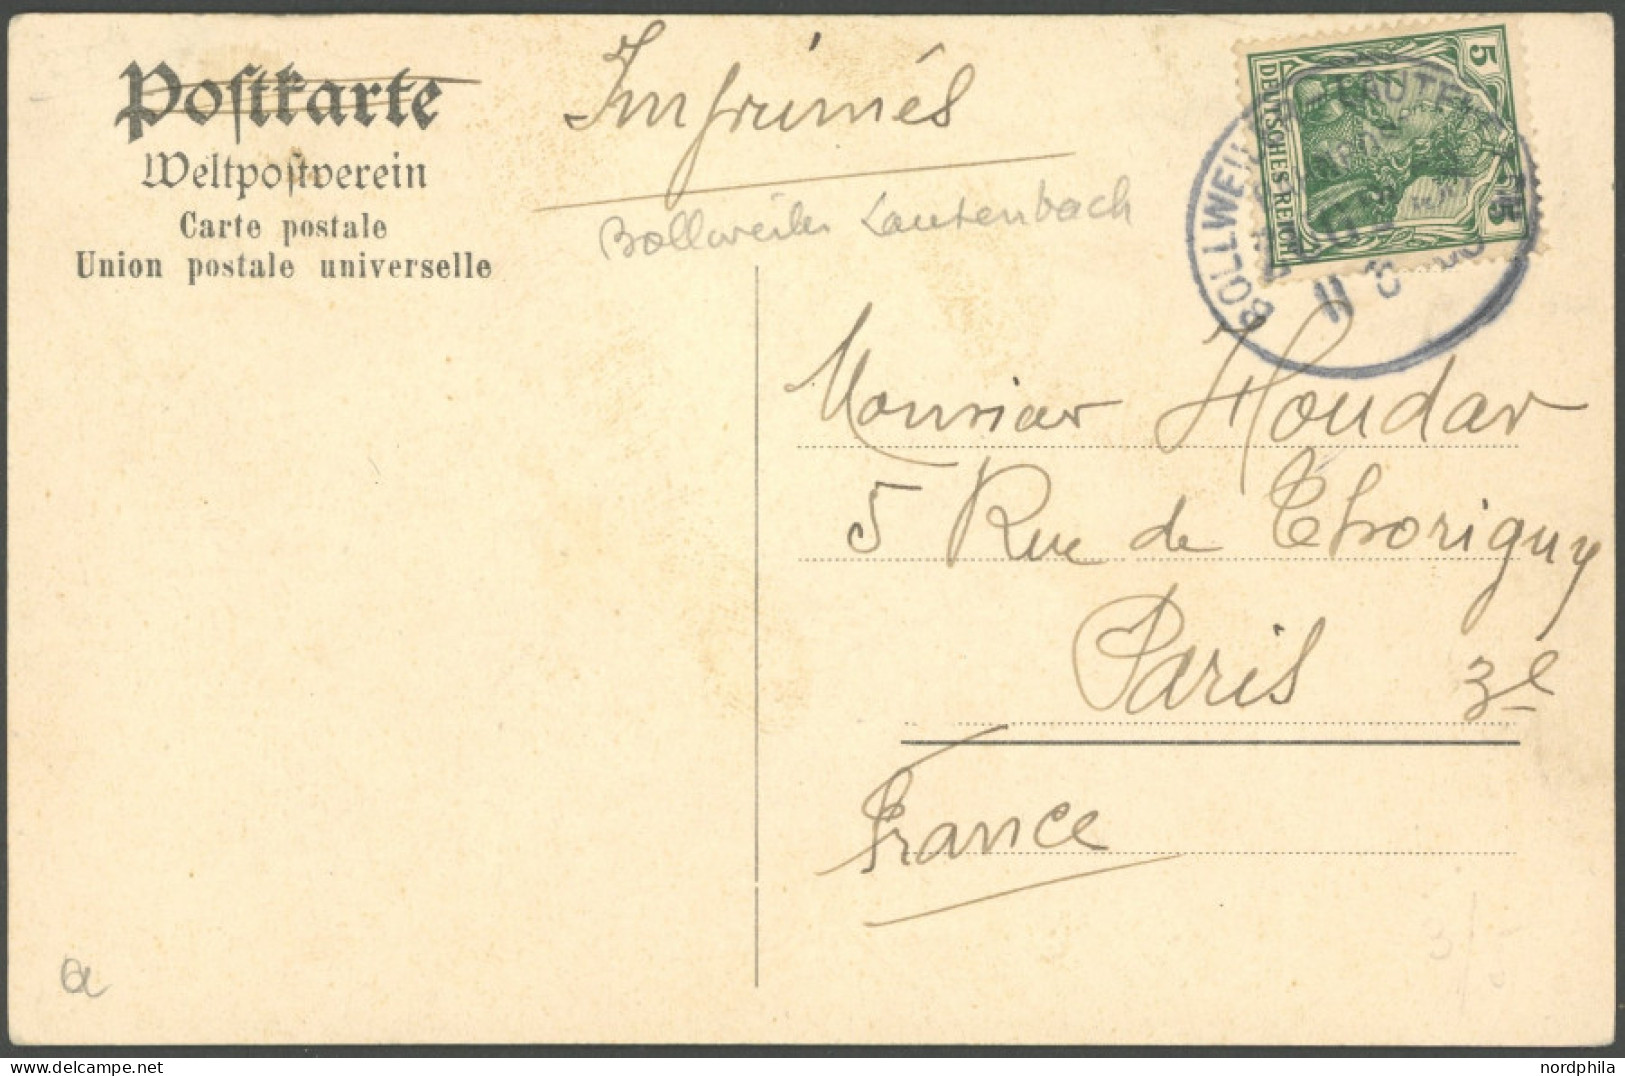 Postkarte
Weltpostverein
Carte postale
Union postale universelle
Imprimés
Bollweiler Lautenbach
5 5
DEUTSCHES REICH
BOLLWEILER
Monsieur Houdar
5 Rue de Thorigny
Paris 3e
France
3/5
nordphila